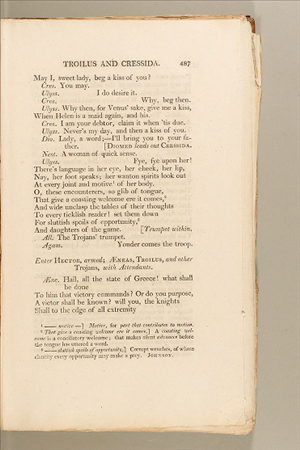 TROILUS AND CRESSIDA. 487
May I, sweet lady, beg a kiss of you?
Cres. You may.
Ulyss. I do desire it.
Cres. Why, beg then.
Ulyss. Why then, for Venus' sake, give me a kiss,
When Helen is a maid again, and his.
Cres. I am your debtor, claim it when 'tis due.
Ulyss. Never's my day, and then a kiss of you.
Dio. Lady, a word;—I'll bring you to your fa-
ther. [DIOMED leads out CRESSIDA.
Nest. A woman of quick sense.
Ulyss. Fye, fye upon her!
There's language in her eye, her cheek, her lip,
Nay, her foot speaks; her wanton spirits look out
At every joint and motive¹ of her body.
O, these encounterers, so glib of tongue,
That give a coasting welcome ere it comes,²
And wide unclasp the tables of their thoughts
To every ticklish reader! set them down
For sluttish spoils of opportunity,³
And daughters of the game. [Trumpet within.
All. The Trojans' trumpet.
Agam. Yonder comes the troop.
Enter HECTOR, armed; ÆNEAS, TROILUS, and other
Trojans, with Attendants.
Æne. Hail, all the state of Greece! what shall
be done
To him that victory commands? Or do you purpose,
A victor shall be known? will you, the knights
Shall to the edge of all extremity
¹ —— motive —] Motive, for part that contributes to motion.
² That give a coasting welcome ere it comes,] A coasting wel-
come is a conciliatory welcome; that makes silent advances before
the tongue has uttered a word.
³ —— sluttish spoils of opportunity,] Corrupt wenches, of whose
chastity every opportunity may make a prey. JOHNSON.